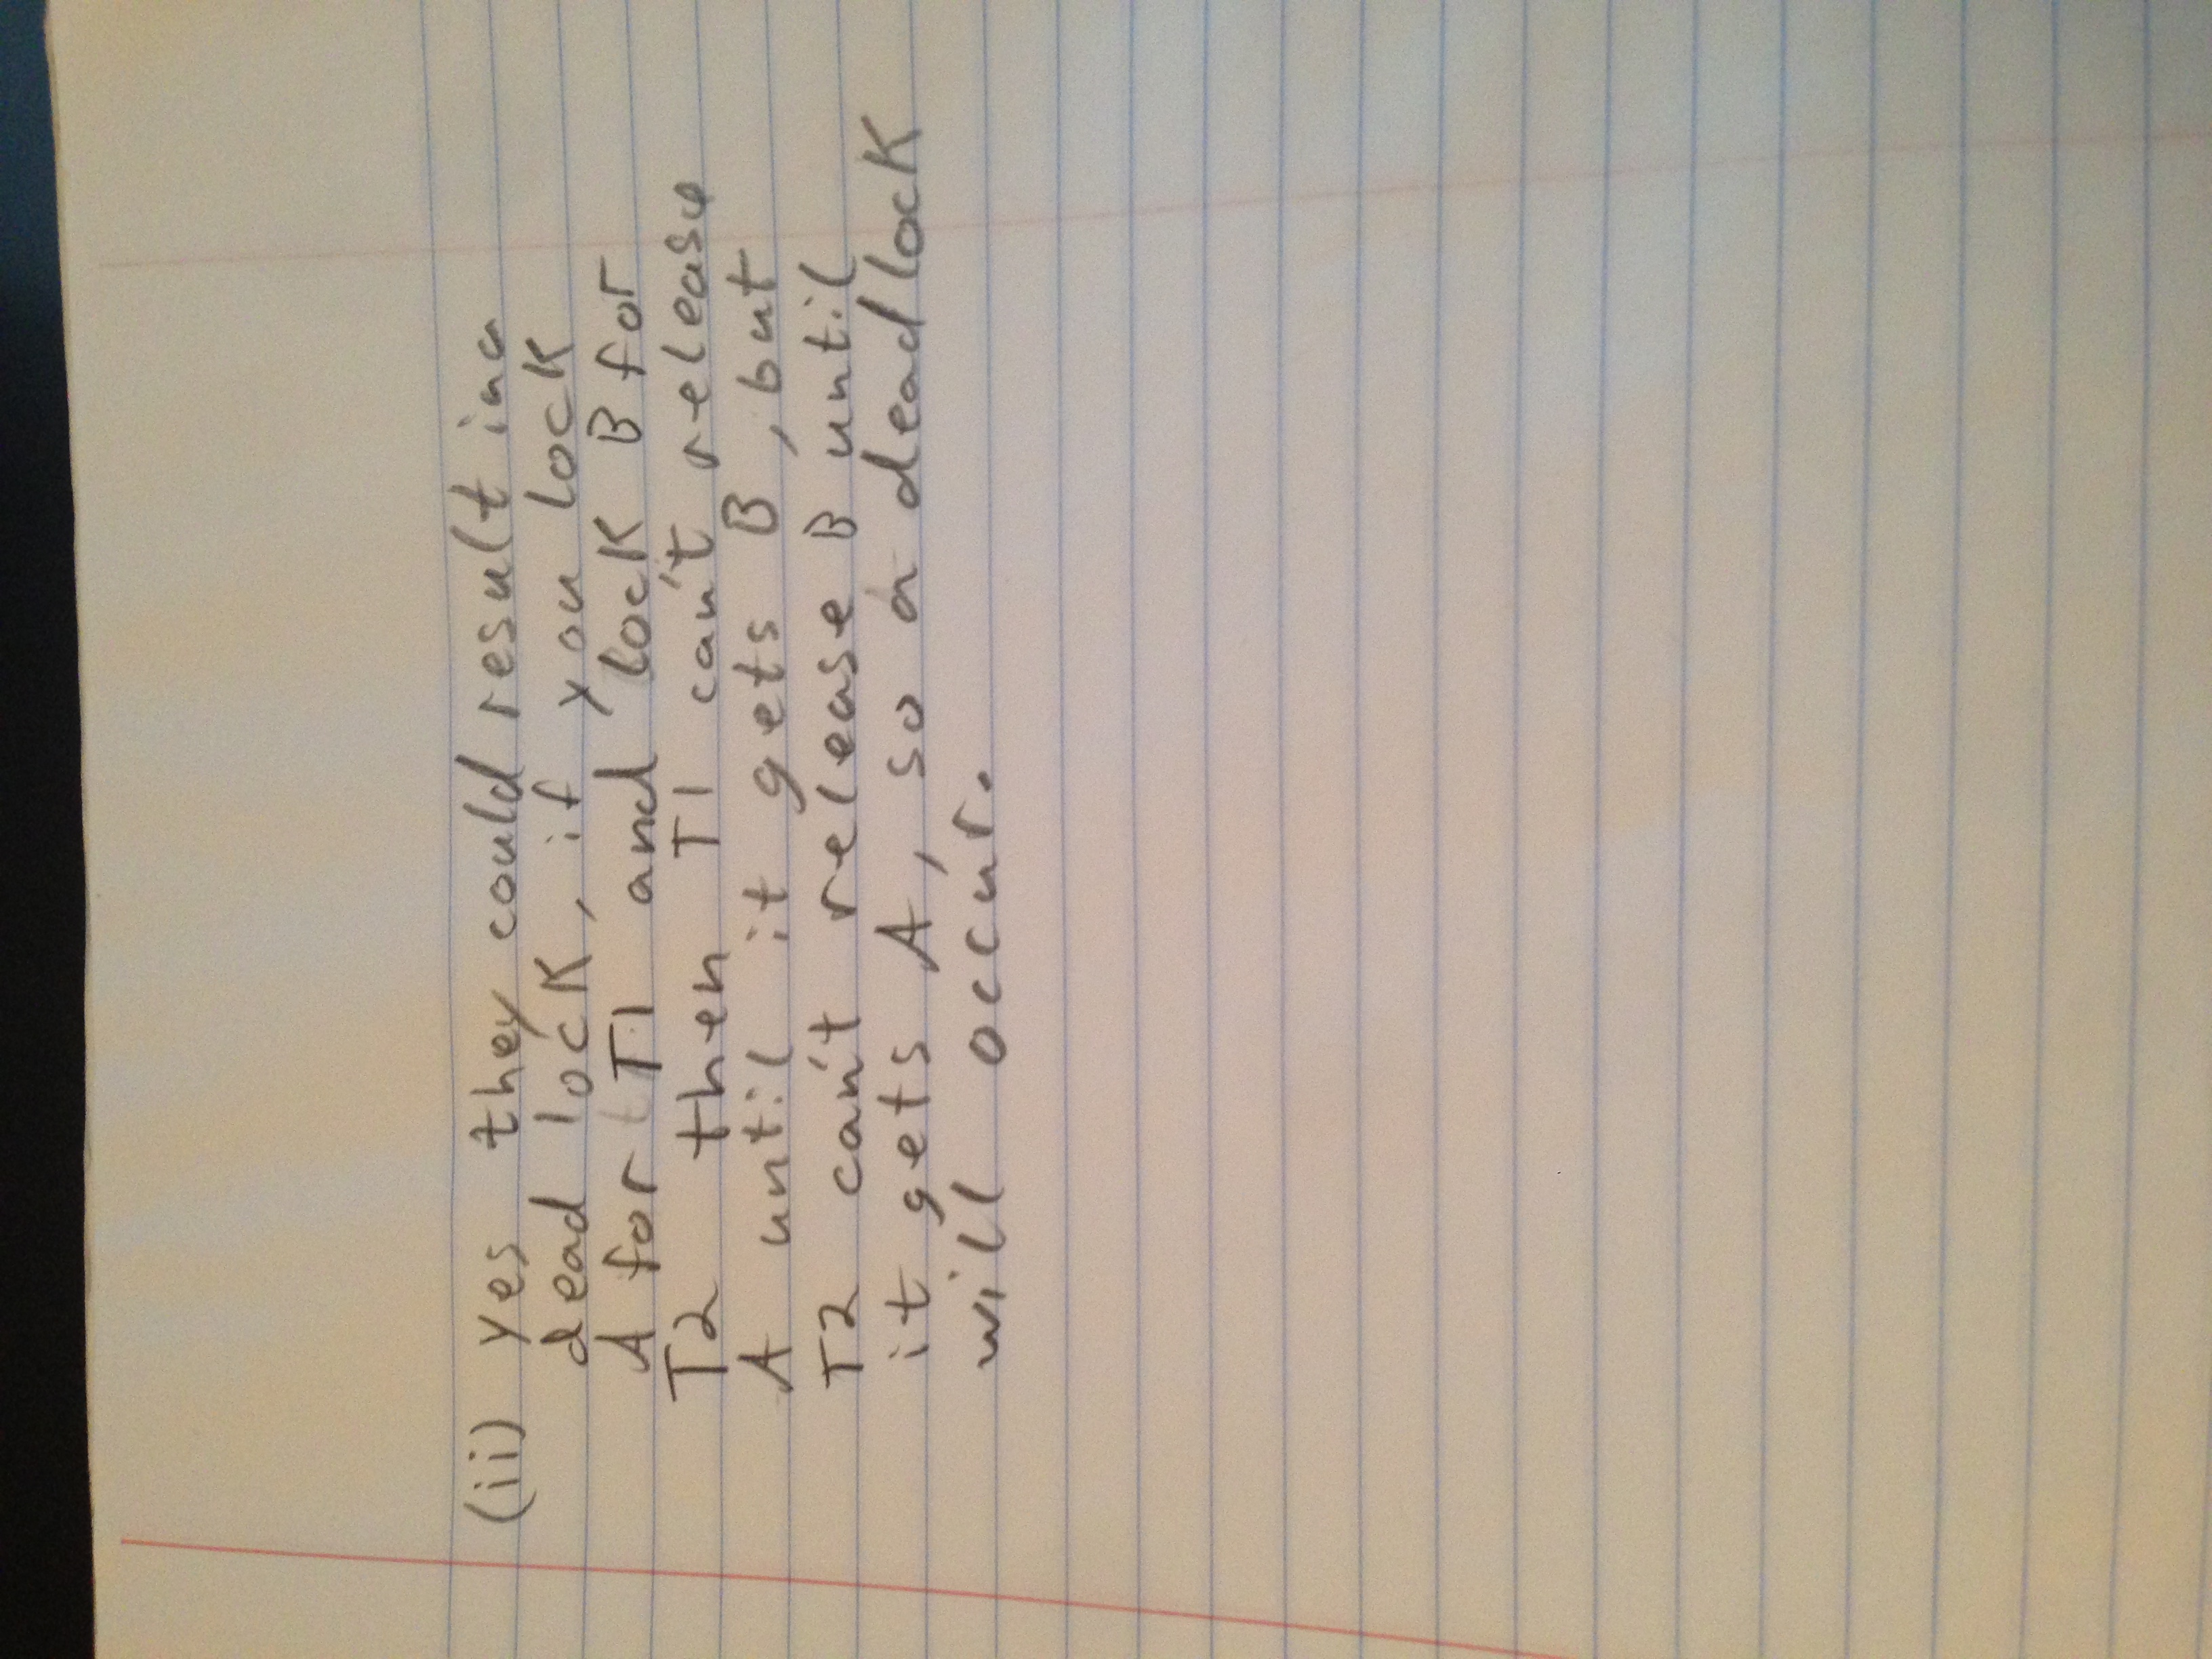 (ii) yes they could result in a
dead lock, if you lock
A for T1 and lock B for
T2 then T1 can't release
A until it gets B, but
T2 can't release B until
it gets A, so a deadlock
will occur.